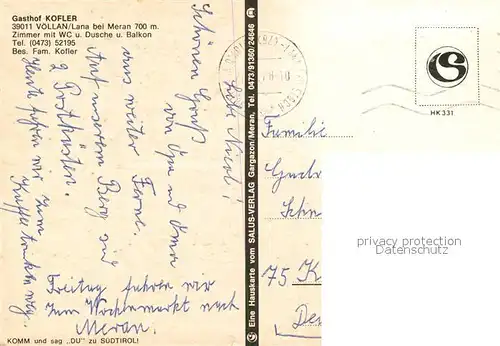 Gasthof KOFLER
39011 VÖLLAN/Lana bei Meran 700 m.
Zimmer mit WC u. Dusche u. Balkon
Tel. (0473) 52195
Bes. Fam. Kofler
Liebe Nicol!
Schönen Gruß
von Opa und Oma
aus weiter Ferne.
Auf unserem Berg sind
2 Postkästen.
Heute fahren wir zum
Kaffee trinken weg.
Freitag fahren wir
zum Wochenmarkt nach
Meran.
KOMM und sag „DU" zu SÜDTIROL!
Eine Hauskarte vom SALUS-VERLAG Gargazon/Meran, Tel. 0473/91360/24646
HK 331
Familie
75 K
privacy protection
Datenschutz